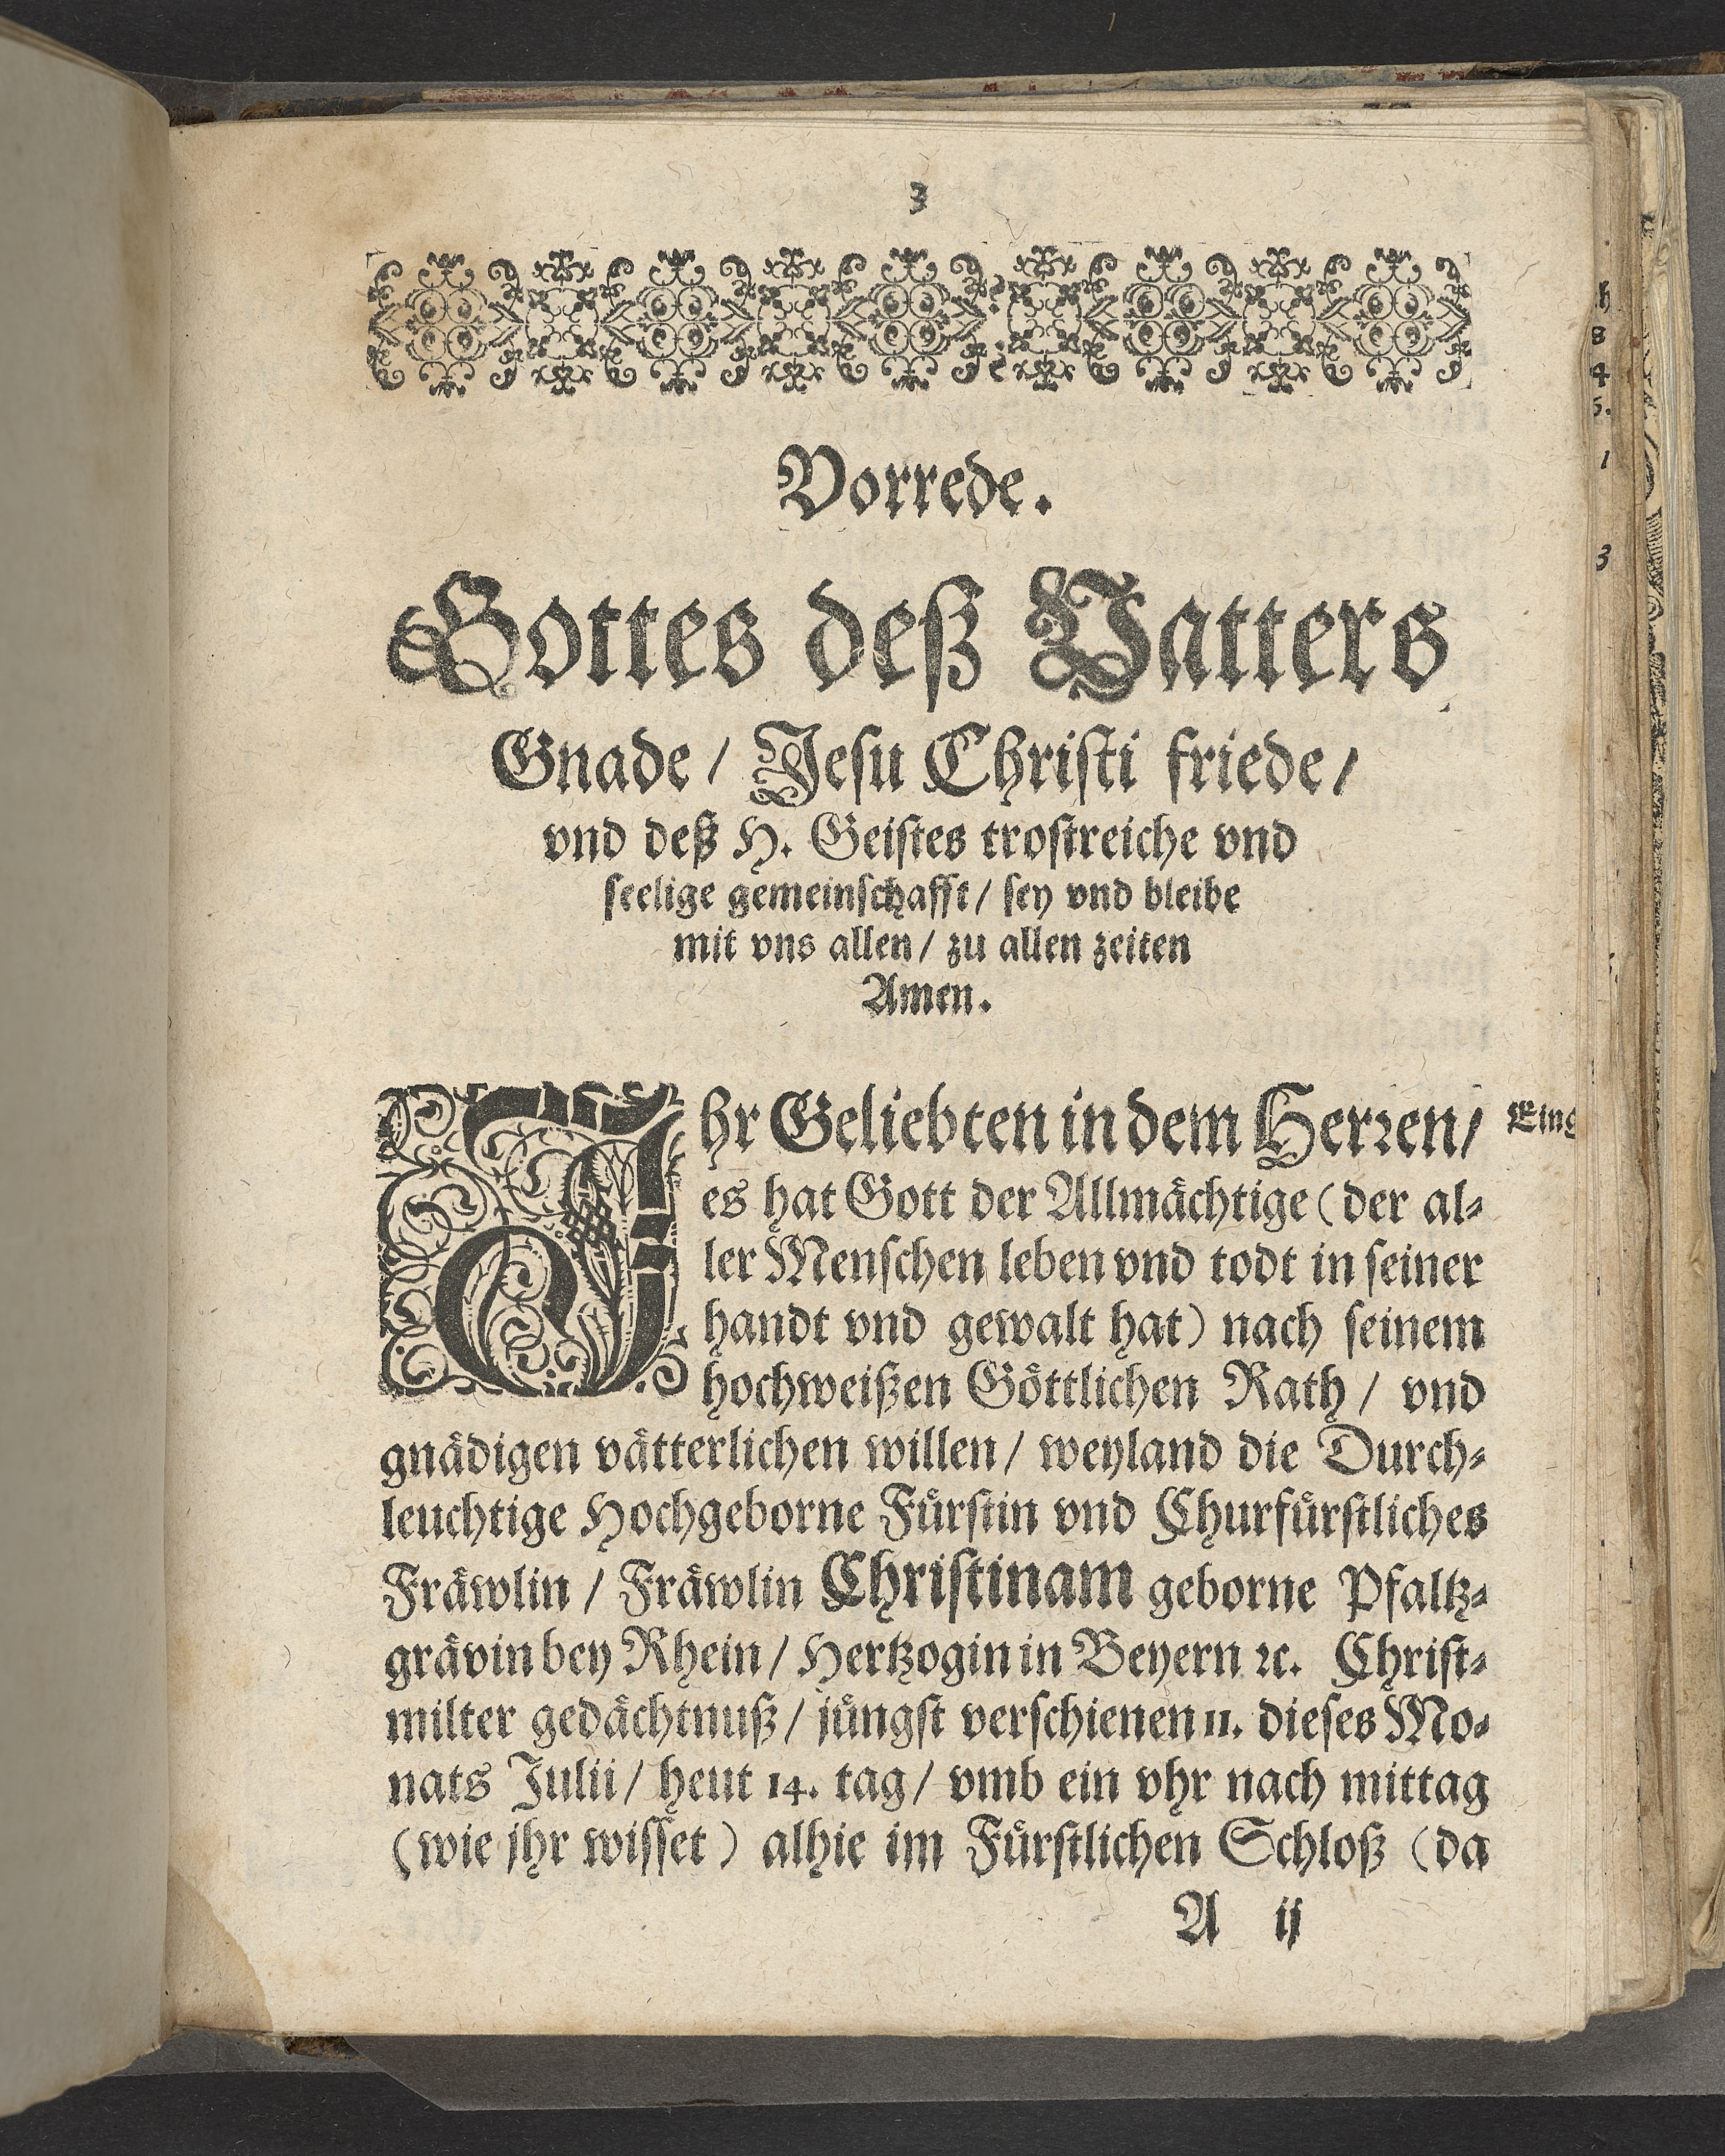 3
Vorrede.
Gottes deß Vatters
Gnade / Jesu Christi friede /
vnd deß H. Geistes trostreiche vnd
seelige gemeinschafft / sey vnd bleibe
mit vns allen / zu allen zeiten
Amen.
Ihr Geliebten in dem Herren /
es hat Gott der Allmächtige (der al⸗
ler Menschen leben vnd todt in seiner
handt vnd gewalt hat) nach seinem
hochweißen Göttlichen Rath / vnd
gnädigen vätterlichen willen / weyland die Durch⸗
leuchtige Hochgeborne Fürstin vnd Churfürstliches
Fräwlin / Fräwlin Christinam geborne Pfaltz⸗
grävin bey Rhein / Hertzogin in Beyern ꝛc. Christ⸗
milter gedächtnuß / jüngst verschienen 11. dieses Mo⸗
nats Julii / heut 14. tag / vmb ein vhr nach mittag
(wie jhr wisset) alhie im Fürstlichen Schloß (da
A ij